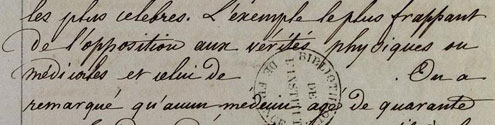 les plus celebres. L'exemple le plus frappant
de l'opposition aux vérités physiques ou
médicales et celui de . On a
remarqué qu'aucun médecin agé de quarante
BIBLIOTH
DE
L'INSTITUT
DE FRANCE